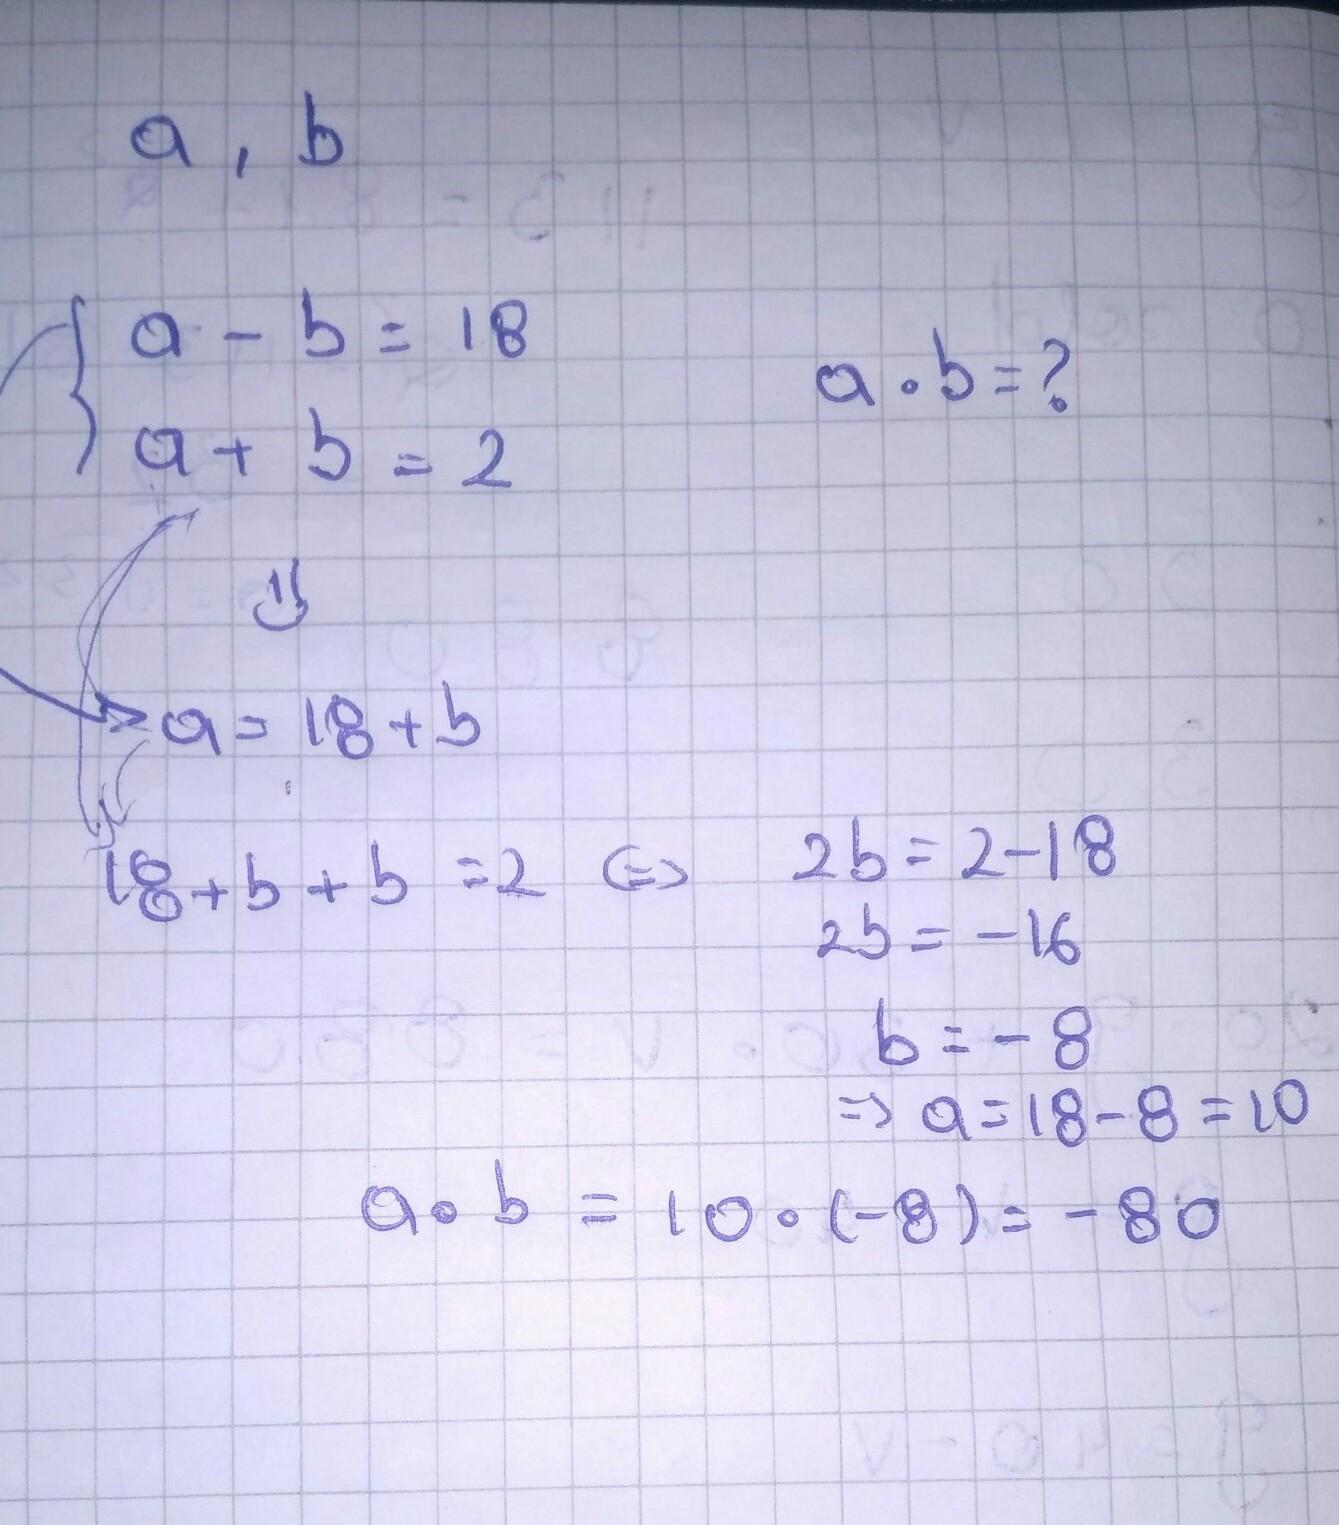 a , b
a - b = 18
a + b = 2
a · b = ?
a = 18 + b
18 + b + b = 2 <=> 2b = 2 - 18
2b = - 16
b = - 8
=> a = 18 - 8 = 10
a · b = 10 · (-8) = - 80